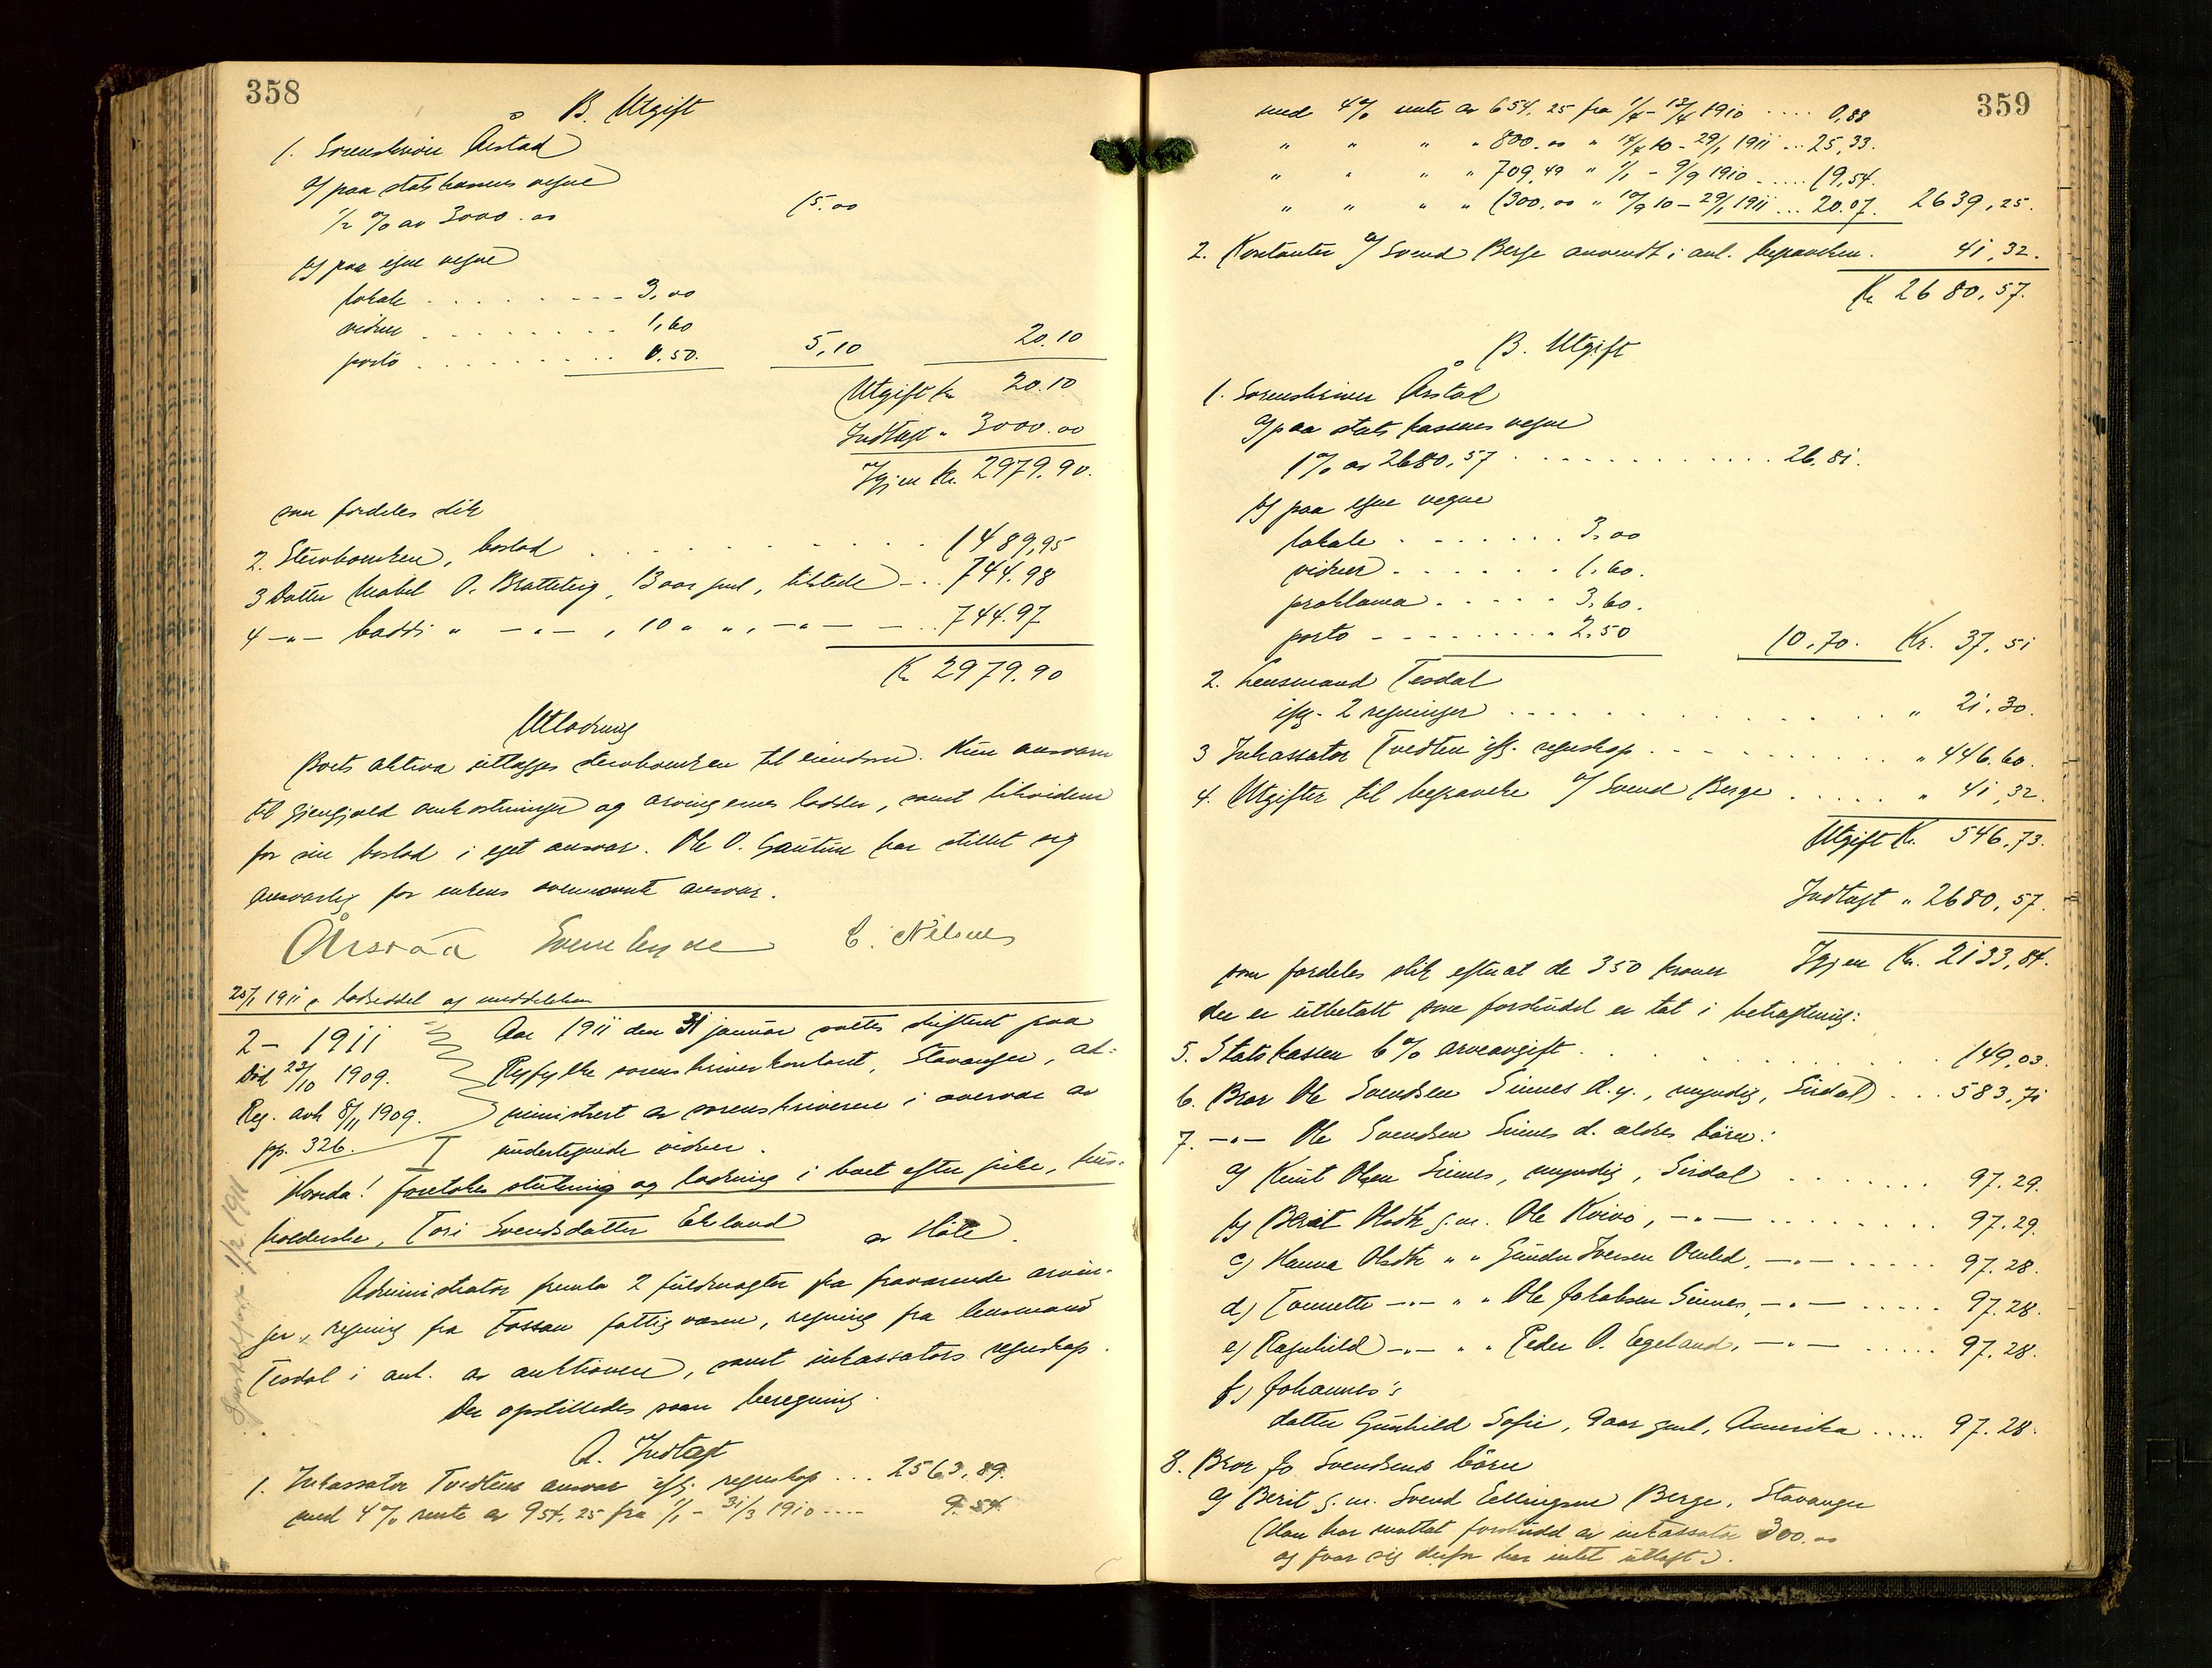 358
B. Utgift
1. Sorenskriver Årstad
a) paa statskassens vegne
1/2 % av 3000.00 15.00
b) paa egne vegne
lokale ........ 3,00
vidner ........ 1,60
porto ........ 0.50. 5,10 20.10
Utgift kr 20.10
Indtægt " 3000.00
Igjen kr. 2979.90.
som fordeles slik
2. Stervboenken, boslod ........ 1489,95
3 Datter Mabel O. Bratteteig, 13 aar gml, tilstede ... 744.98
4 —"— " —"— , 10 " ", —"— ... 744.97
Kr 2979.90
Utlodning
Boets aktiva utlægges stervboenken til eiendom. Hun ansvarer
til gjengjæld omkostninger og arvingernes lodder, samt likviderer
for sin boslod i eget ansvar. Ole O. Gautun har stillet sig
ansvarlig for enkens ovennævnte ansvar.
C. Nilsen
25/1 1911 e. lodseddel og meddelelsen
2 - 1911 Aar 1911 den 31 januar sattes skifteret paa
Död 23/10 1909. Ryfylke sorenskriverkontoret, Stavanger, ad-
Reg. avh 8/11 1909. ministrert av sorenskriveren i overvær av
pp. 326. undertegnede vidner.
Hvorda! foretokes slutning og lodning i boet efter pike, hus-
holderske, Tori Svendsdatter Ekeland av Høle.
1/2 1911
Administrator fremla 2 fuldmagter fra fraværende arvin-
ger, regning fra Fossan fattigvæsen, regning fra lensmand
Tesdal i anl. av auktionen, samt inkassators regnskap.
Der opstilledes saan beregning.
A. Indtægt
1. Inkassator Tvedtens ansvar iflg. regnskap ... 2563,89.
med 4% rente av 954,25 fra 1/1 - 31/3 1910 .... 9.54
359
med 4% rente av 654.25 fra 1/4 - 12/4 1910 .... 0,88
" " " " 800.00 " 14/4 10 - 29/1 1911 ... 25,33.
" " " " 709,49 " 1/1 - 9/9 1910 ..... 19,54.
" " " " 1300,00 " 10/9 10 - 29/1 1911 ... 20.07. 2639,25.
2. Kontanter a/ Svend Berge anvendt i anl. begravelsen. 41,32.
Kr 2680,57.
B. Utgift
1. Sorenskriver Årstad
a) paa statskassens vegne
1% av 2680,57 ............ 26.81.
b) paa egne vegne
lokale ........ 3.00
vidner ........ 1.60.
proklama ..... 3,60.
porto ........ 2.50 10.70. Kr. 37,51
2. Lensmand Tesdal
iflg. 2 regninger ............ " 21,30.
3 Inkassator Tvedten iflg. regnskap ........ " 446.60.
4. Utgifter til begravelse a/ Svend Berge ..... " 41,32.
Utgift Kr. 546,73.
Indtægt " 2680,57.
Igjen Kr. 2133,84.
som fordeles slik efterat de 350 kroner
der er utbetalt som forskudd er tat i betragtning:
5. Statskassen 6% arveavgift ............ 149,03.
6. Bror Ole Svendsen Sinnes d.y., myndig, Sirdal ... 583,71
7. —"— Ole Svendsen Sinnes d. ældres børn:
a) Knut Olsen Sinnes, myndig, Sirdal ....... 97.29.
b) Berit Olsdtr g.m. Ole Kvivo, —"— ....... 97.29.
c) Hanna Olsdtr " " Gunder Iversen Omlid, —"— ..... 97.28.
d) Tonnette —"— " " Ole Jakobsen Sinnes, —"— ..... 97.28.
e) Ragnhild —"— " " Peder O. Egeland, —"— ..... 97.28.
f) Johannes's
datter Gunhild Sofie, 9 aar gml, Amerika ..... 97.28.
8. Bror Jo Svendsens børn
a) Berit g.m. Svend Ellingsen Berge, Stavanger
(Han har mottat forskudd av inkassator 300.00
og faar sig derfor her intet utlagt).